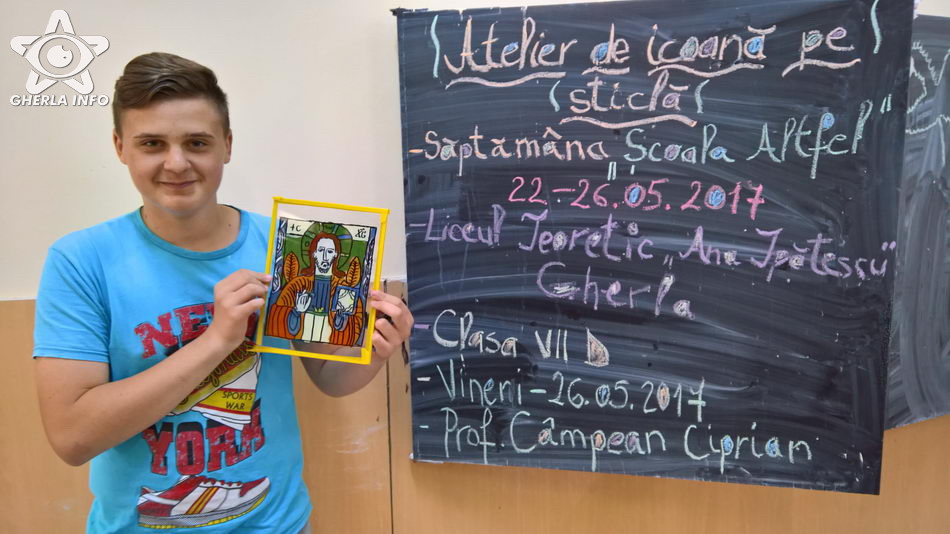 GHERLA INFO
Atelier de icoană pe
sticlă
-Săptamâna "Scoala Altfel"
22-26.05.2017
-Liceul Teoretic "Ana Ipătescu"
Gherla
-Clasa VII D
-Vineri-26.05.2017
-Prof. Câmpean Ciprian
NEW
SPORTS
WAR
YORK